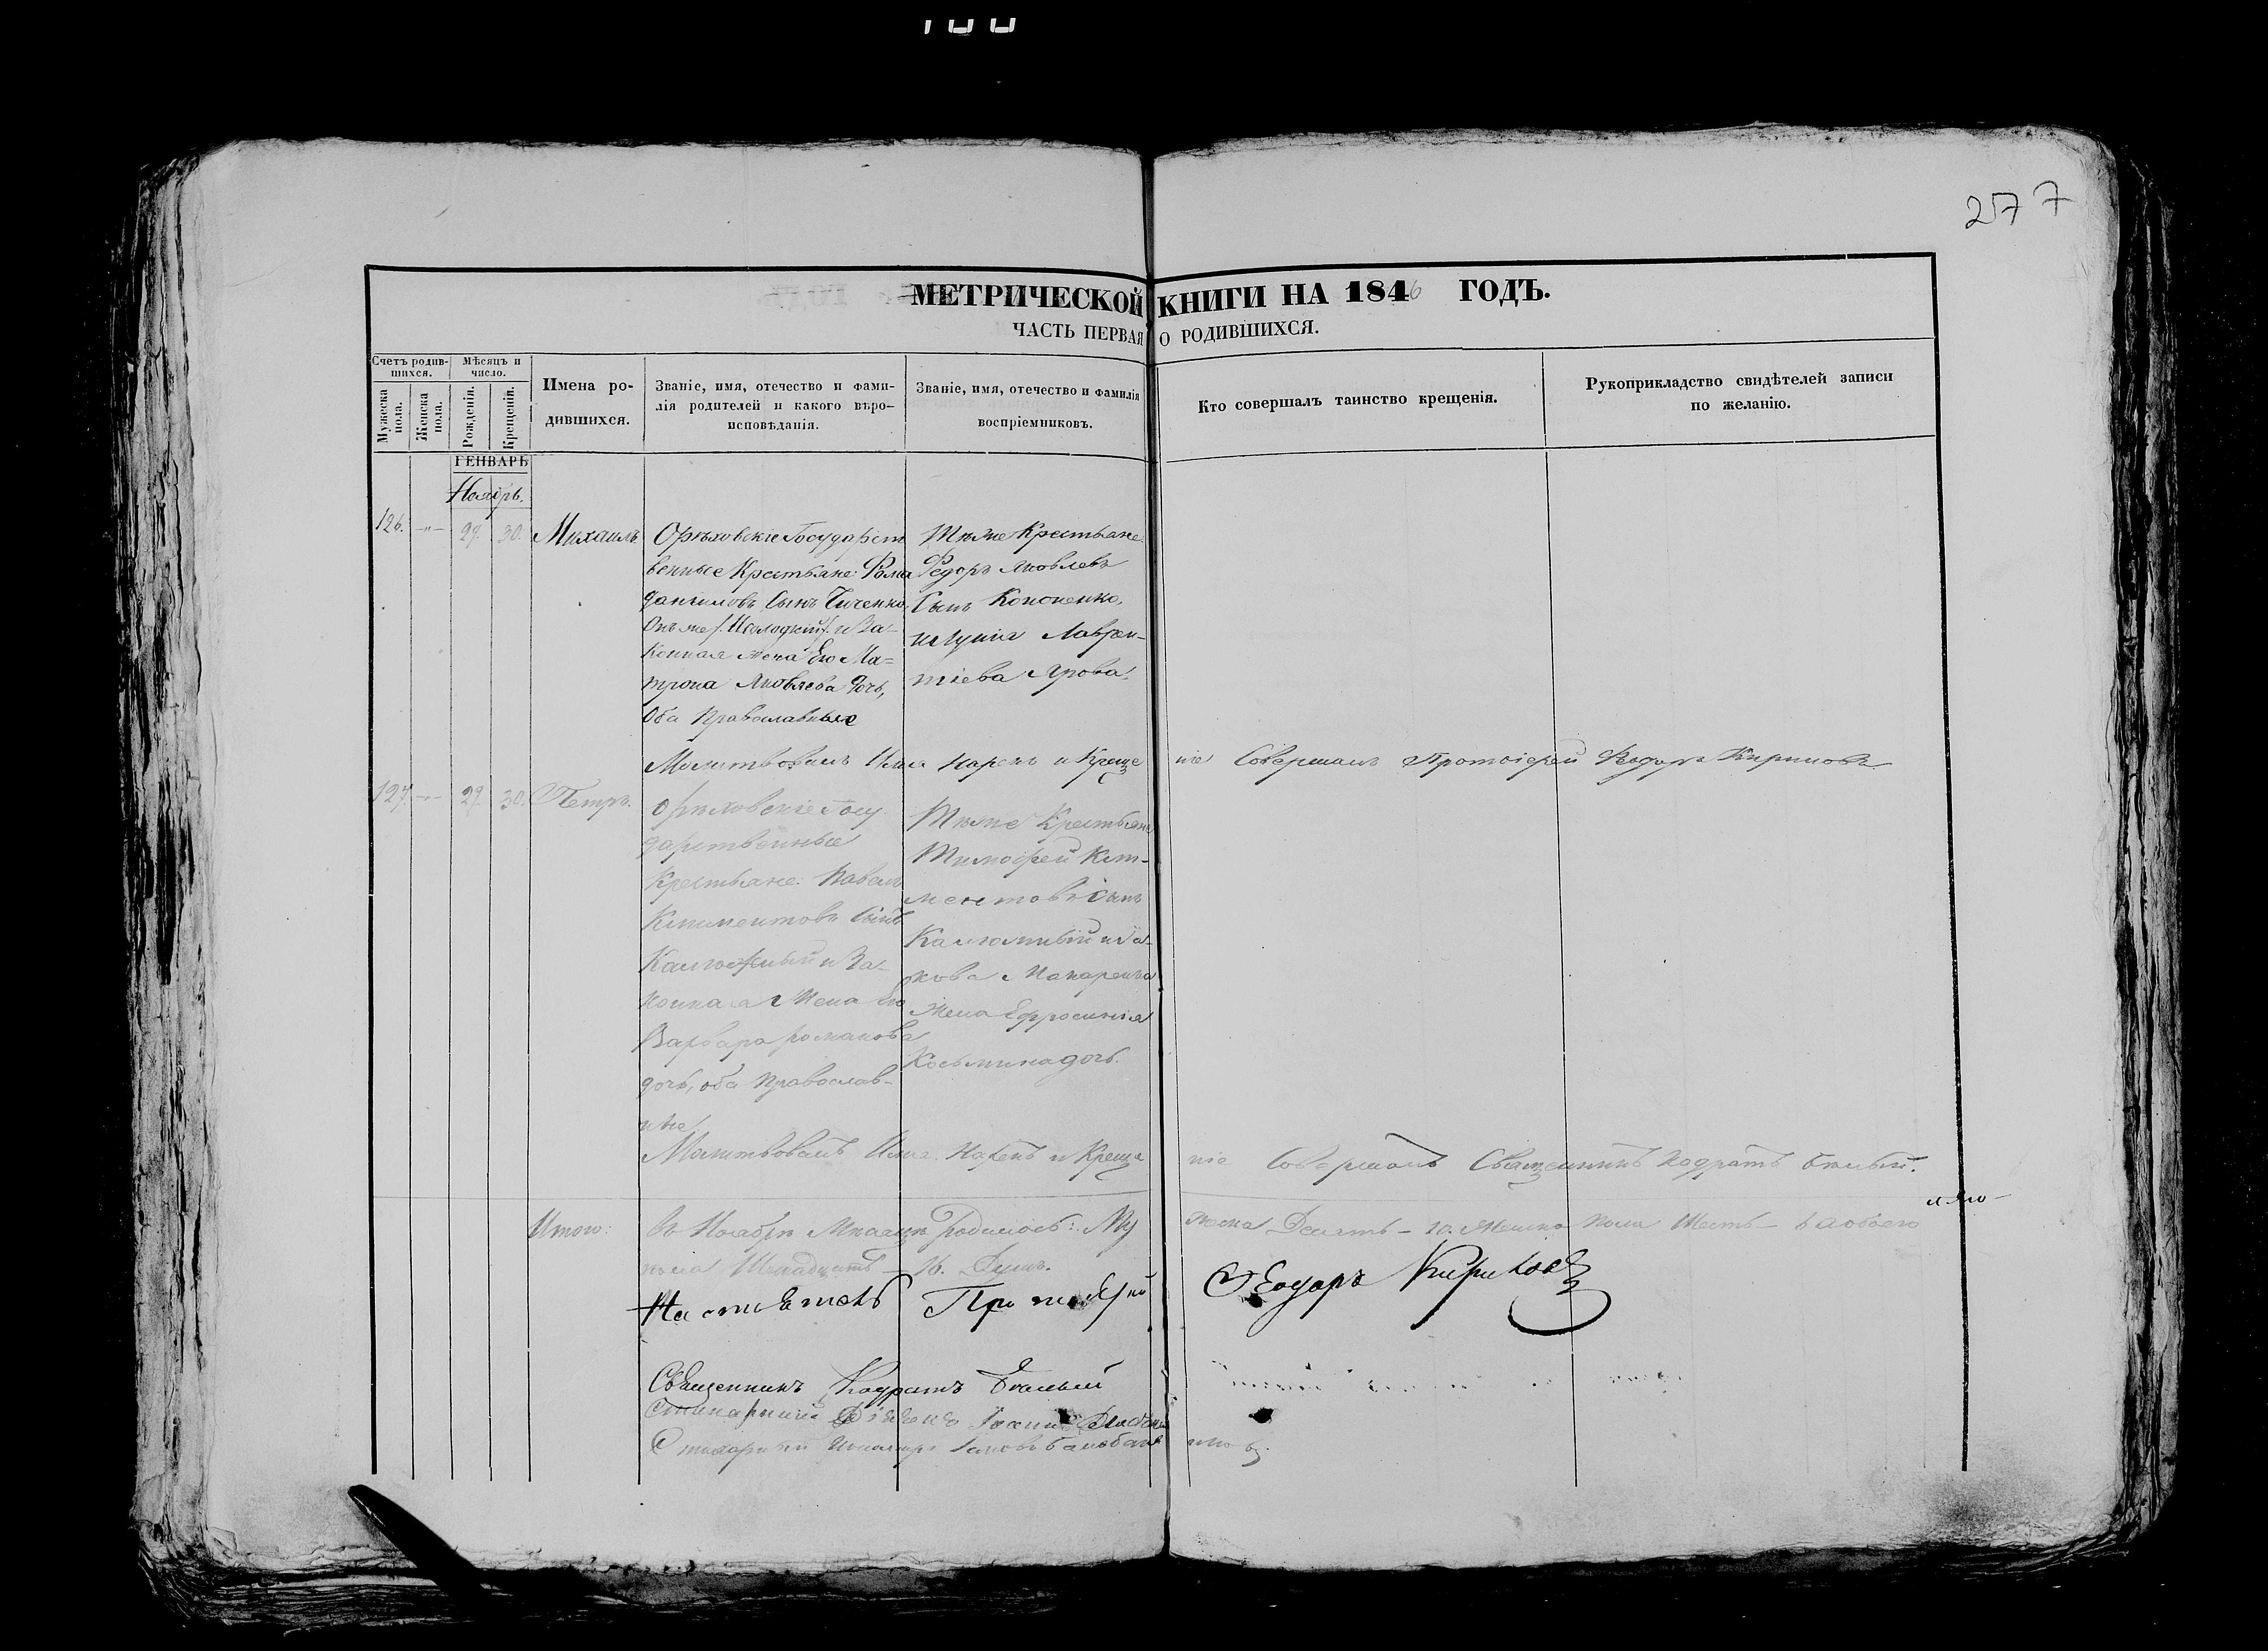 277
МЕТРИЧЕСКОЙ КНИГИ НА 1846 ГОДЪ.
ЧАСТЬ ПЕРВАЯ О РОДИВШИХСЯ.
Счетъ родив-
шихся.
Мужеска пола.
Женска пола.
Мѣсяцъ и
число.
Рожденія.
Крещенія.
Имена ро-
дившихся.
Званіе, имя, отечество и фами-
лія родителей и какого вѣро-
исповѣданія.
Званіе, имя, отечество и фамилія
воспріемниковъ.
Кто совершалъ таинство крещенія.
Рукоприкладство свидѣтелей записи
по желанію.
ГЕНВАРЬ
Ноябрь.
126. -„- 29. 30. Михаилъ
Орѣховскіе Государст
венные Крестьяне: Фома
Даниловъ Сынъ
Онъ же и За-
конная жена Его Ма-
трона Яковлева дочь,
Оба Православные
Тѣже Крестьяне
Федоръ Яковлевъ
Сынъ Кононенко,
Лаврен-
тіева
Молитвовалъ Имя Нарекъ и Креще
ніе Совершалъ Протоіерей Феодоръ Кириловъ
127. -„- 29. 30. Петръ.
Орѣховскіе Госу
дарственные
Крестьяне: Павелъ
Климентовъ Сынъ
и За-
конная Жена Его
Варвара Романова
дочь, оба Православ-
ные
Тѣже Крестьяне
Тимофей Кли-
ментовъ Сынъ
и Я-
кова Макаренка
Жена Ефросинія
Косьмина дочь.
Молитвовалъ Имя Нарекъ и Креще
ніе Совершалъ Священникъ Кодратъ Бѣлый.
Итого: въ Ноябрѣ Мѣсяцѣ Родилось: Му
жеска Десять - 10. Женска Пола Шесть - 6 а обоего
пола Шестнадцать - 16. Душъ.
Настоятель Протоіерей Феодоръ Кириловъ
Священникъ Кодратъ Бѣлый
Стихарный Іоаннъ
Стихарный Пономарь Іаковъ